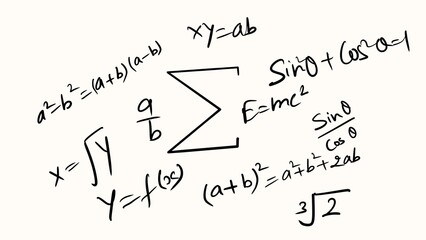 xy=ab
a²=b²=(a+b)(a-b)
Sin²θ+Cos²θ=1
a/b
Σ
E=mc²
Sinθ/Cosθ
x=∫y
y=f(x)
(a+b)²=a²+b²+2ab
³√2